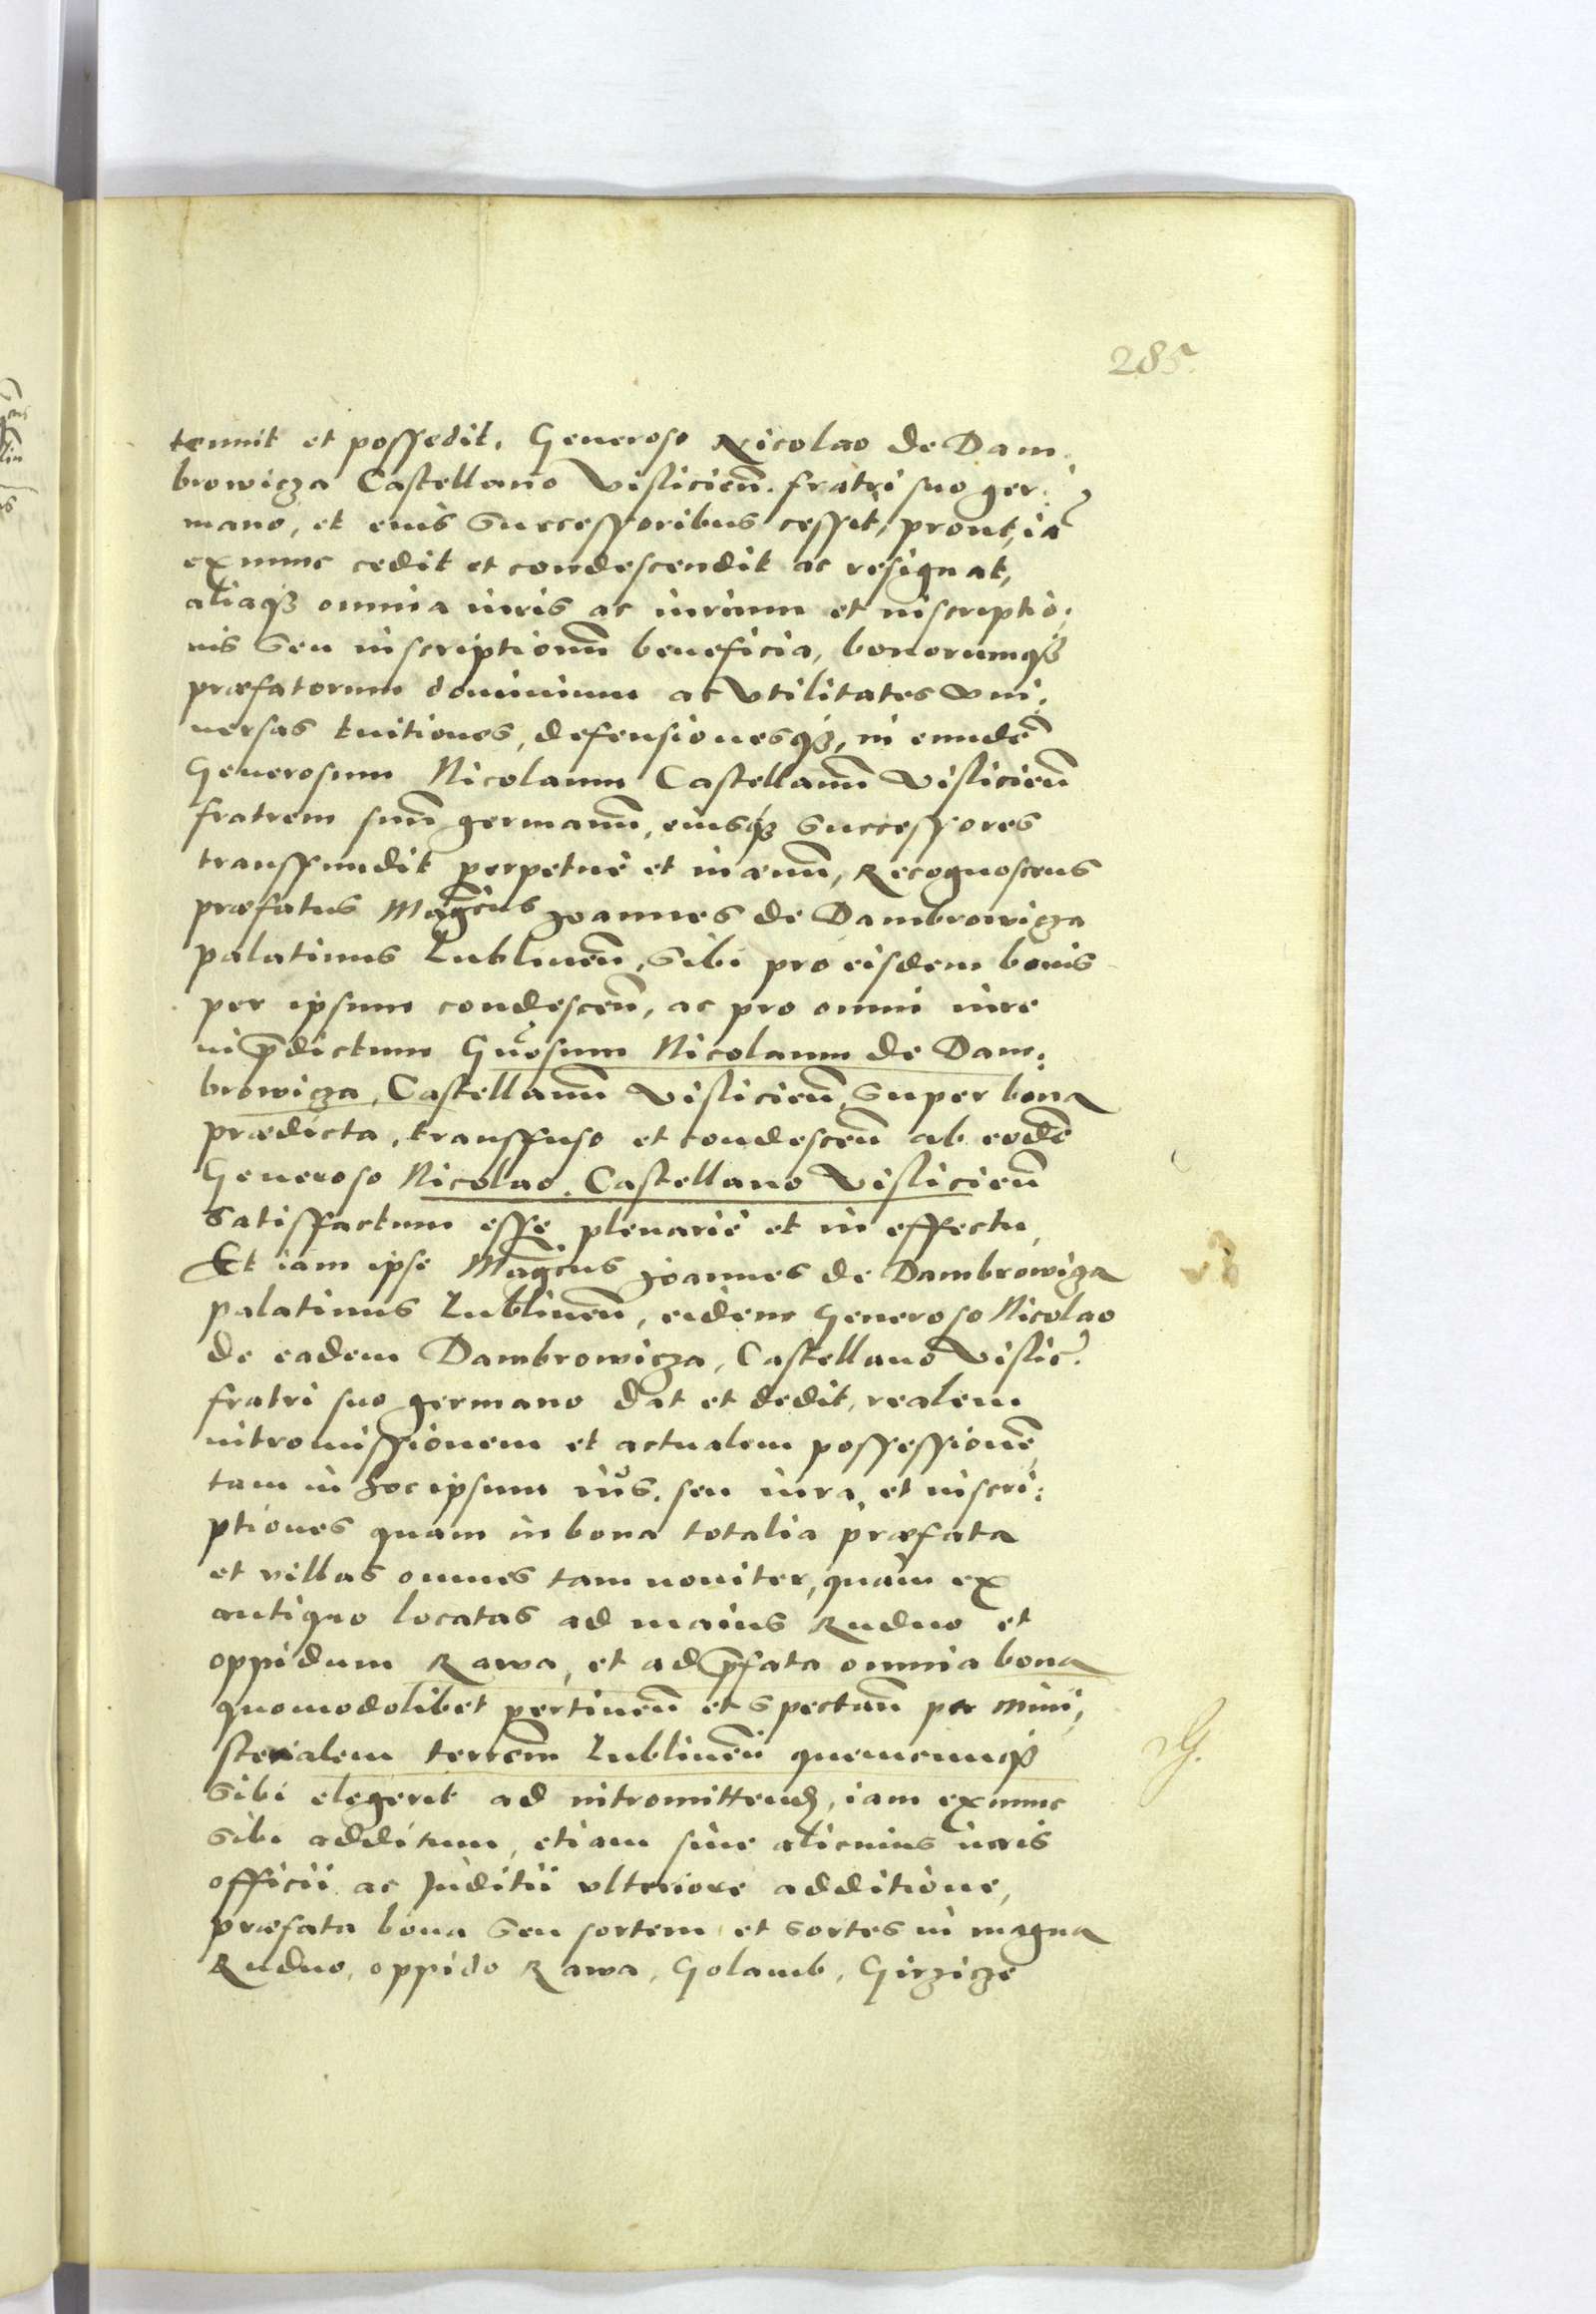 285
tenuit et possedit, Generoso Nicolao de Dam,
browicza Castellano Visliciēn. fratri suo ger:
mano, et eius Successoribus cessit, prout iā
exnunc cedit et condescendit ac resignat,
aliaqȝ omnia iuris ac iurium et inscriptio:
nis Seu inscriptionū beneficia, bonorumqȝ
præfatorum dominium ac Vtilitates Vni:
uersas tuitiones, defensionesqȝ, in eundē
Generosum Nicolaum Castellanū Visliciēn
fratrem suū germanū, eiusqȝ Successores
transfundit perpetuè et in æuū, Recognoscens
præfatus Magcus Joannes de Dambrowicza
palatinus Lublineñ, Sibi pro eisdem bonis
per ipsum condesceñ, ac pro omni iure
in p̄dictum Gñosum Nicolaum de Dam:
browicza, Castellanū Visliciēn, Super bona
prædicta, transfuso et condesceñ ab eodē
Generoso Nicolao, Castellano Visliciēn
Satisfactum esse plenariè et in effectu,
Et iam ipse Magcus Joannes de Dambrowicza
palatinus Lublineñ, eidem Generoso Nicolao
de eadem Dambrowicza, Castellano Vislic.
fratri suo germano dat et dedit, realem
intromissionem et actualem possessionē,
tam in hoc ipsum iūs, seu iura et inscri:
ptiones quam in bona totalia præfata
et villas omnes tam nouiter, quàm ex
antiquo locatas ad maius Rudno et
oppidum Rawa, et ad p̄fata omnia bona
quomodolibet pertineñ et Spectañ per mini,
sterialem terrem Lublineñ quemcunqȝ
Sibi elegerit ad intromittend, iam exnunc
Sibi additum, etiam sine alicuius iuris
officii ac Juditii vlteriore additione,
præfata bona Seu sortem et Sortes in magna
Rudno, oppido Rawa, Golamb, Girzicze